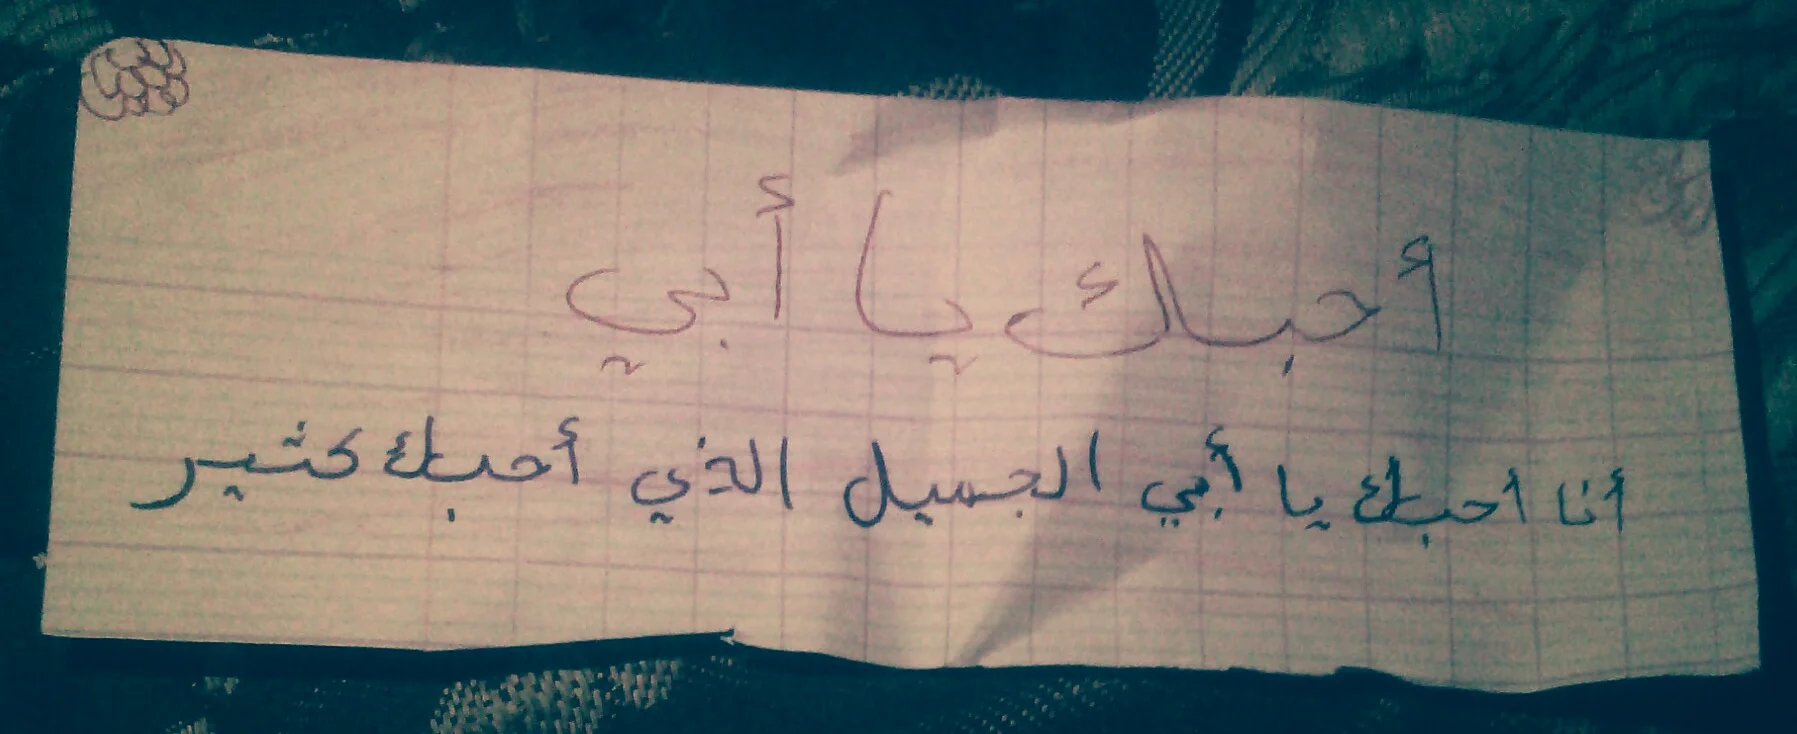 أحبك يا أبي
أنا أحبك يا أبي الجميل الذي أحبك كثير